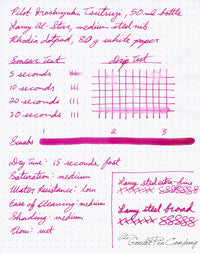 Pilot Iroshizuku Tsutsuji, 50 ml bottle
Lamy Al-Star, medium steel nib
Rhodia dotpad, 80g white paper
Smear Test
Drip Test
5 seconds
10 seconds
20 seconds
30 seconds
Swabs
1 2 3
Dry Time: 15 seconds, fast
Saturation: medium
Water Resistance: low
Ease of Cleaning: medium
Shading: medium
Flow: wet
Lamy steel extra-fine
xxxxxx 88888888
Lamy steel broad
xxxxxx 88888
The Goulet Pen Company